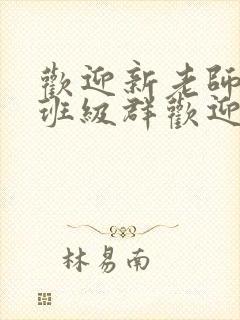 歡迎新老師
班級群歡迎
林易南